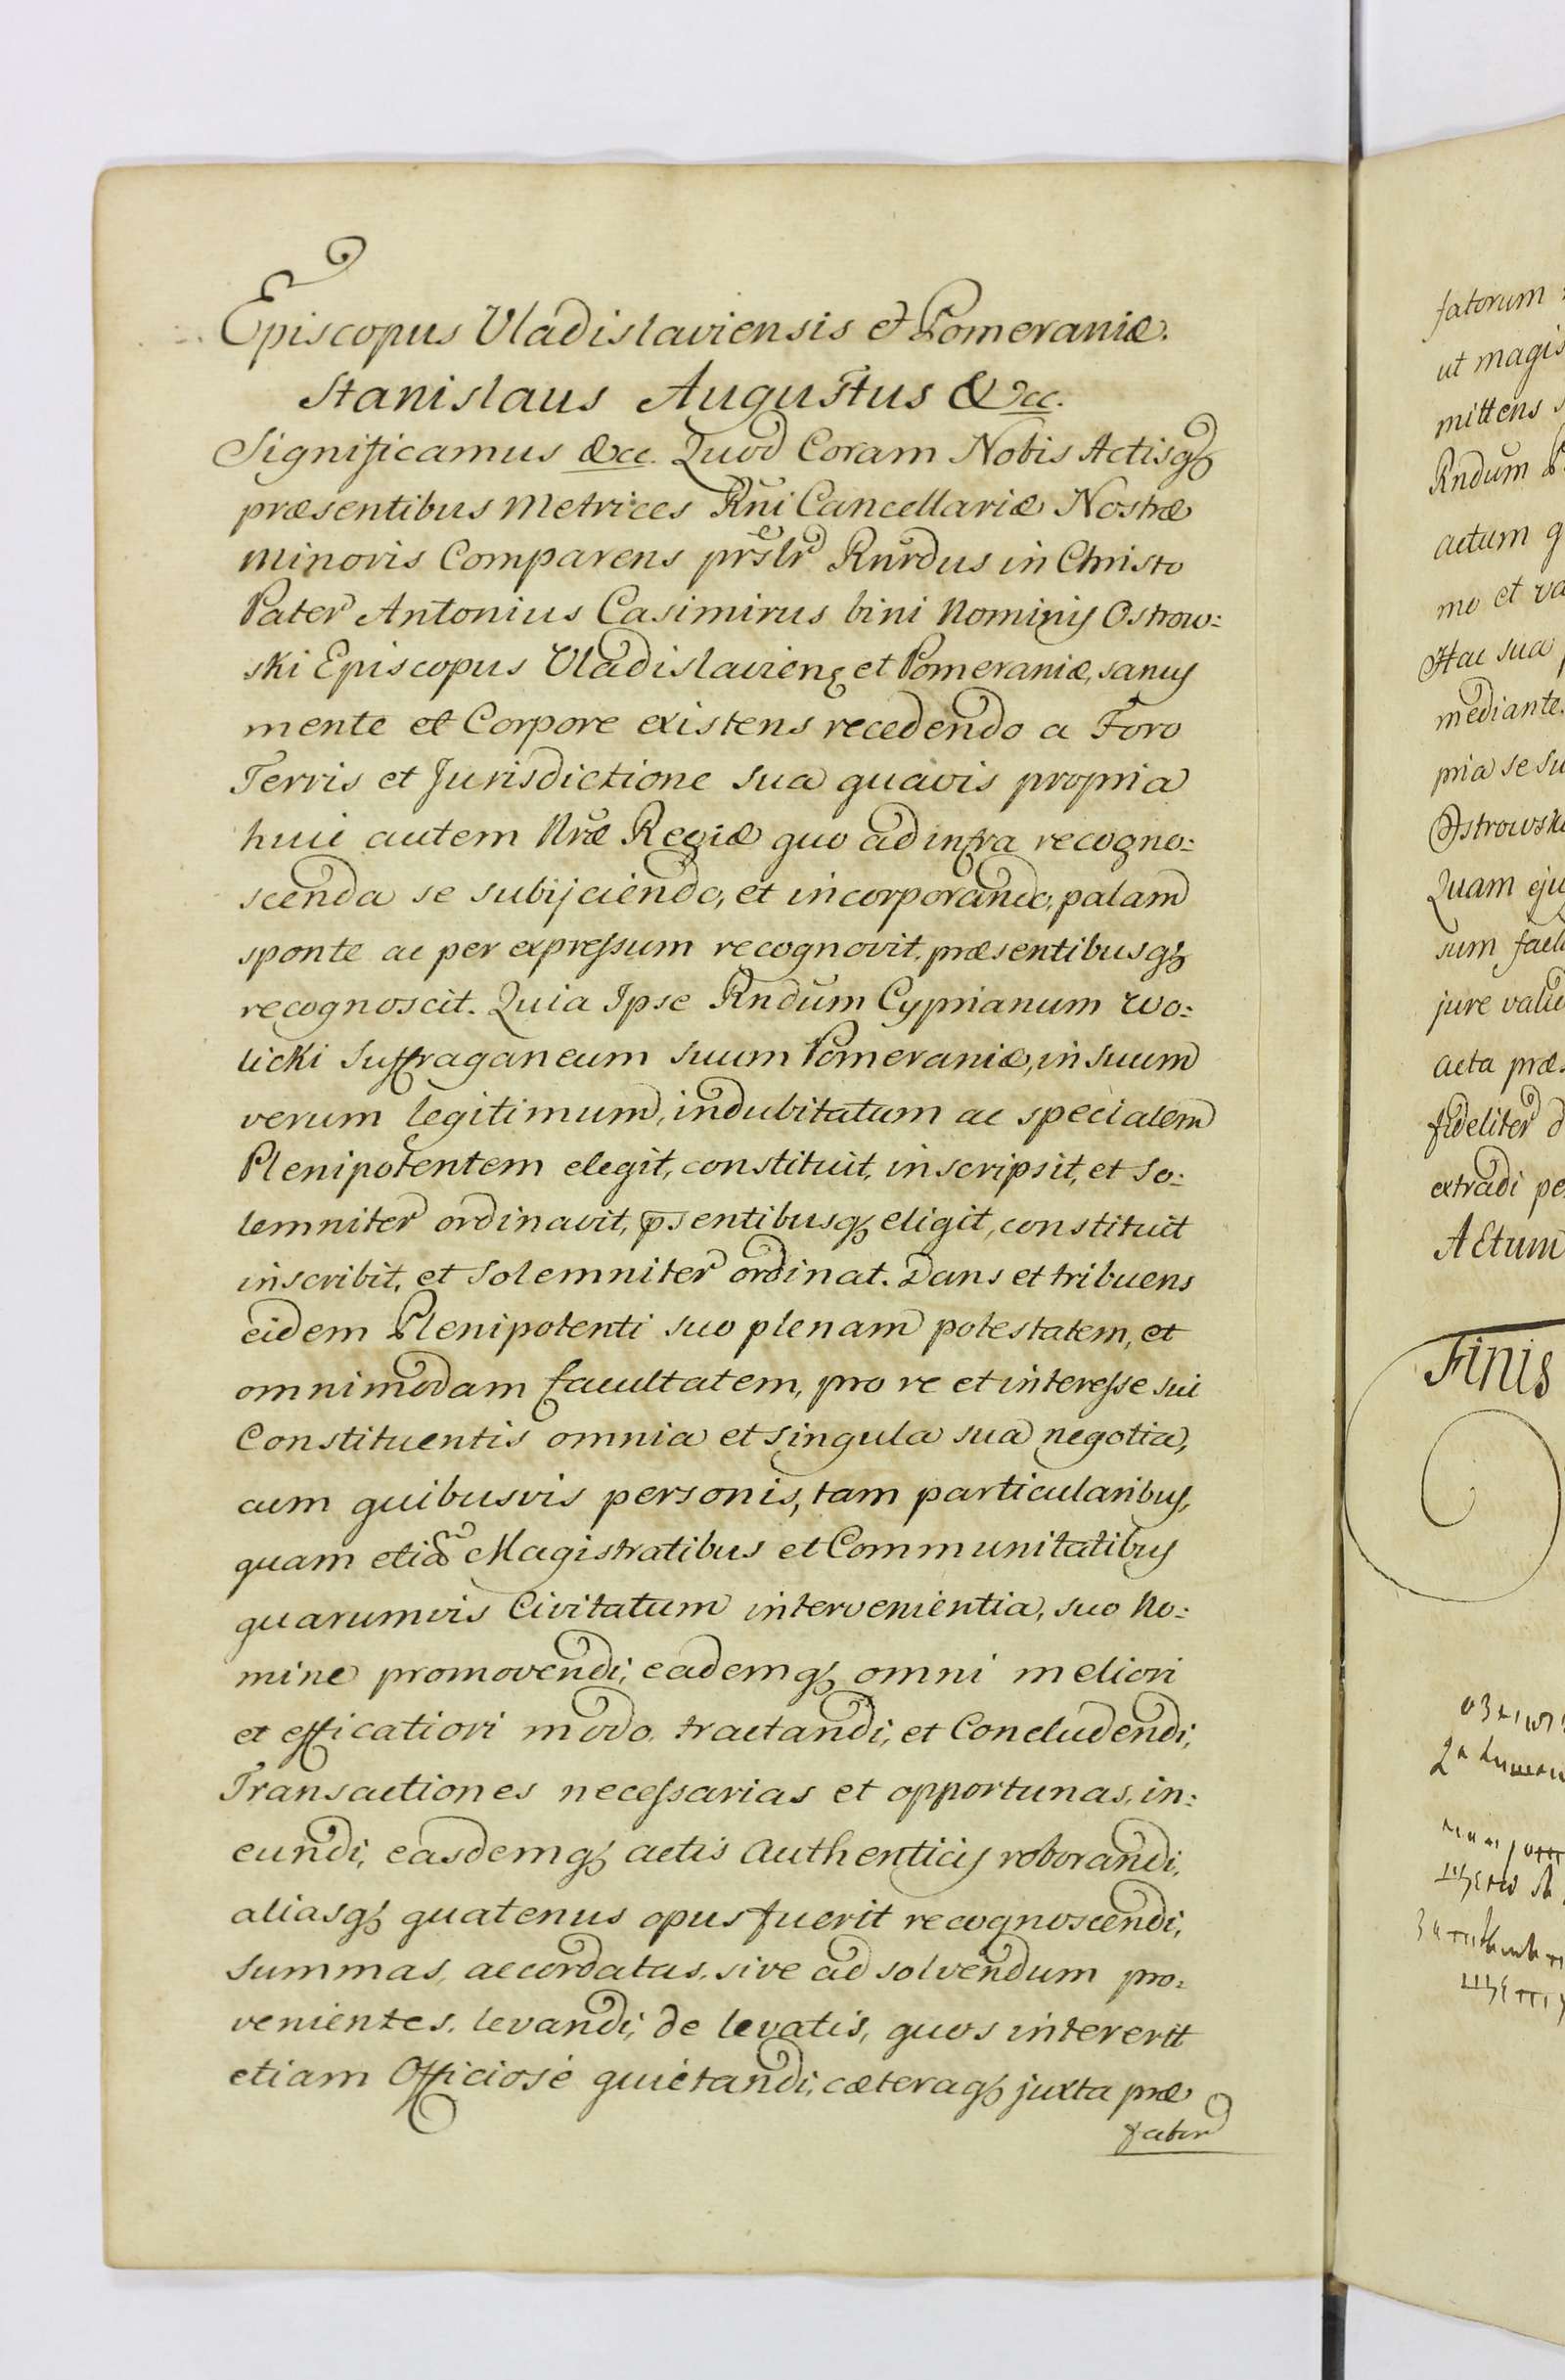 Episcopus Vladislaviensis et Pomeraniæ.
Stanislaus Augustus &cc.
Significamus &cc. Quod Coram Nobis Actisq3
præsentibus Metrices Rñi Cancellariæ Nostræ
minoris Comparens prs̃lr Rnr̃dus in Christo
Pater Antonius Casimirus bini Nominis Ostrow:
ski Episcopus Vladislavienς et Pomeraniæ, sanus
mente et Corpore existens recedendo a Foro
Terris et Jurisdictione sua quavis propria
huic autem Nr̃æ Regiæ quo ad infra recogno:
scenda se subijciendo, et incorporando, palam
sponte ac per expressum recognovit, præsentibusq3
recognoscit. Quia Ipse Rndum Cyprianum Wo:
licki Suffraganeum suum Pomeraniæ, in suum
verum legitimum, indubitatum ac specialem
Plenipotentem elegit, constituit, inscripsit, et So:
lemniter ordinavit, p̃sentibusq3 eligit, constituit
inscribit, et Solemniter ordinat. Dans et tribuens
eidem Plenipotenti suo plenam potestatem, et
omnimodam facultatem, pro re et interesse sui
Constituentis omnia et singula sua negotia,
cum quibusvis personis, tam particularibus,
quam etiã Magistratibus et Communitatibus
quarumvis Civitatum intervenientia, suo No:
mine promovendi, eademq3 omni meliori
et efficatiori modo, tractandi, et Concludendi,
Transactiones necessarias et opportunas, in:
eundi, easdemq3 actis Authenticis roborandi,
aliasq3 quatenus opus fuerit recognoscendi,
summas, accordatas, sive ad solvendum pro:
venientes, levandi, de levatis, quos intererit
etiam Officiosè quiétandi, cæteraq3 juxta præ
fator
fatorum
ut magis
mittens
Rndum
actum
mo et
Hac sua
mediante
pria se su
Ostrowsk
Quam eju
sum
jure
acta præ
fideliter
extradi pe
Actum
Finis